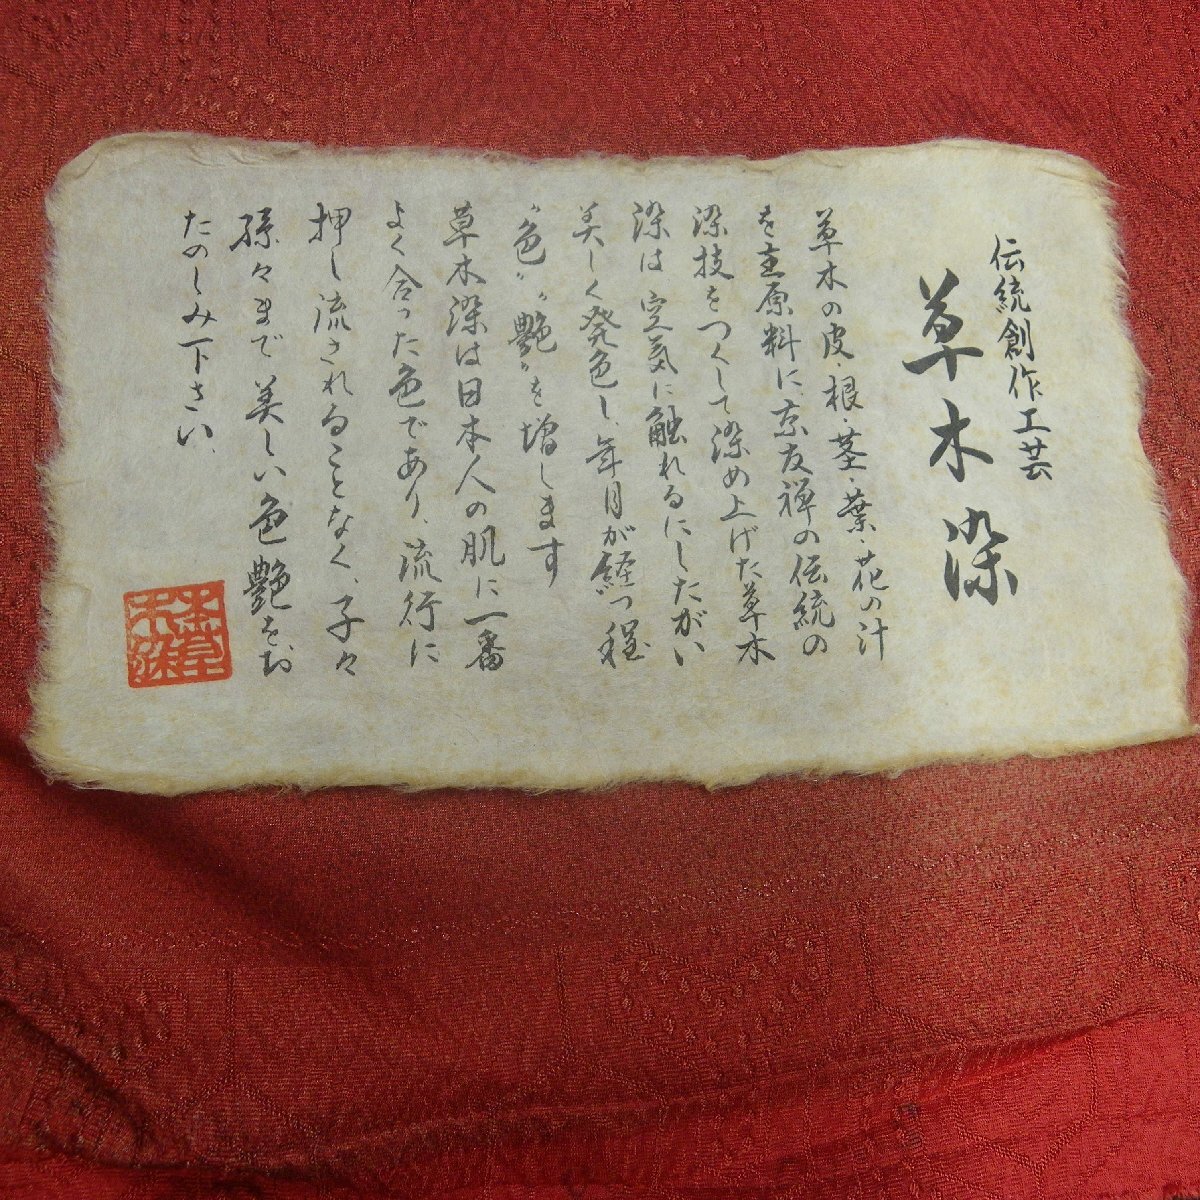 伝統創作工芸
草木染
草木の皮・根・茎・葉・花の汁
を主原料に、京友禅の伝統の
染技をつくして染め上げた草木
染は空気に触れるにしたがい
美しく発色し、年月が経つ程
"色""艶"を増します
草木染は日本人の肌に一番
よく合った色であり、流行に
押し流されることなく、子々
孫々まで美しい色艶を、お
たのしみ下さい、
草木木染